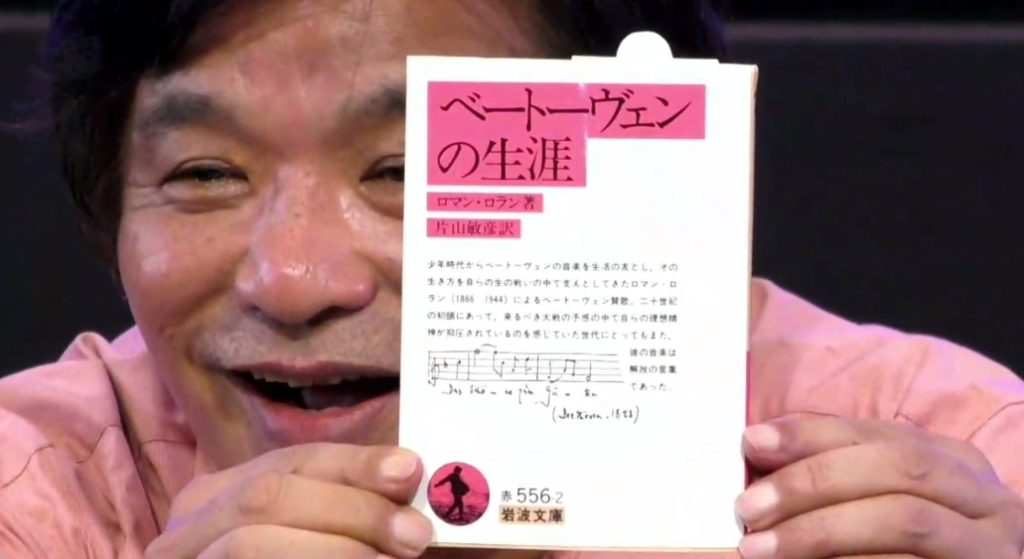 ベートーヴェン
の生涯
ロマン・ロラン著
片山敏彦訳
少年時代からベートーヴェンの音楽を生活の友とし、その
生き方を自らの生の戦いの中で支えとしてきたロマン・ロ
ラン(1866 1944)によるベートーヴェン賛歌。二十世紀
の初頭にあって、来るべき大戦の予感の中で自らの理想精
神が抑圧されているのを感じていた世代にとってもまた、
彼の音楽は
解放の言葉
であった。
Das Schö - ne zum Gu - ten
(Beethoven. 1823)
赤 556-2
岩波文庫